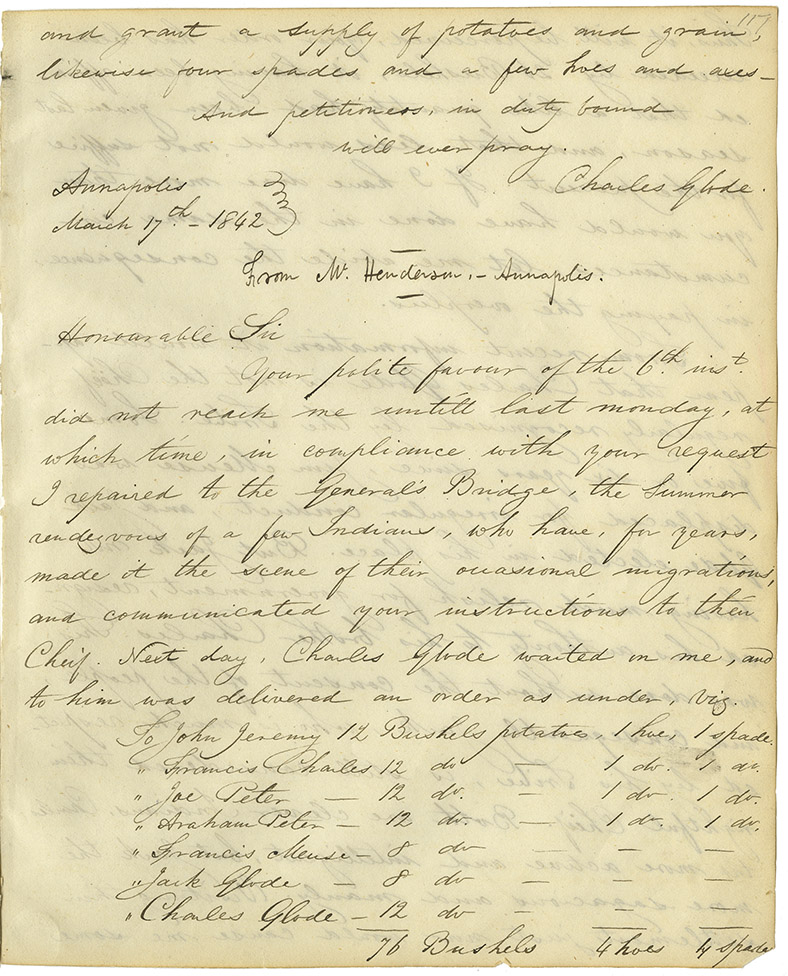 117
and grant a supply of potatoes and grain,
likewise four spades and a few hoes and axes –
And petitioners, in duty bound
will ever pray.
Annapolis
Charles Glode.
March 17th – 1842
From Mr. Henderson, – Annapolis.
Honourable Sir
Your polite favour of the 6th inst.
did not reach me untill last monday, at
which time, in compliance with your request
I repaired to the General's Bridge, the Summer
rendezvous of a few Indians, who have, for years,
made it the scene of their occasional migrations,
and communicated your instructions to their
Cheif. Next day, Charles Glode waited on me, and
to him was delivered an order as under, viz.
To John Jeremy 12 Bushels potatoes, 1 hoe, 1 spade.
" Francis Charles 12 do – 1 do. 1 do.
" Joe Peter – 12 do. – 1 do. 1 do.
" Araham Peter – 12 do. – 1 do. 1 do.
" Francis Meuse – 8 do – – –
" Jack Glode – 8 do – – –
" Charles Glode – 12 do – – –
76 Bushels 4 hoes 4 spade